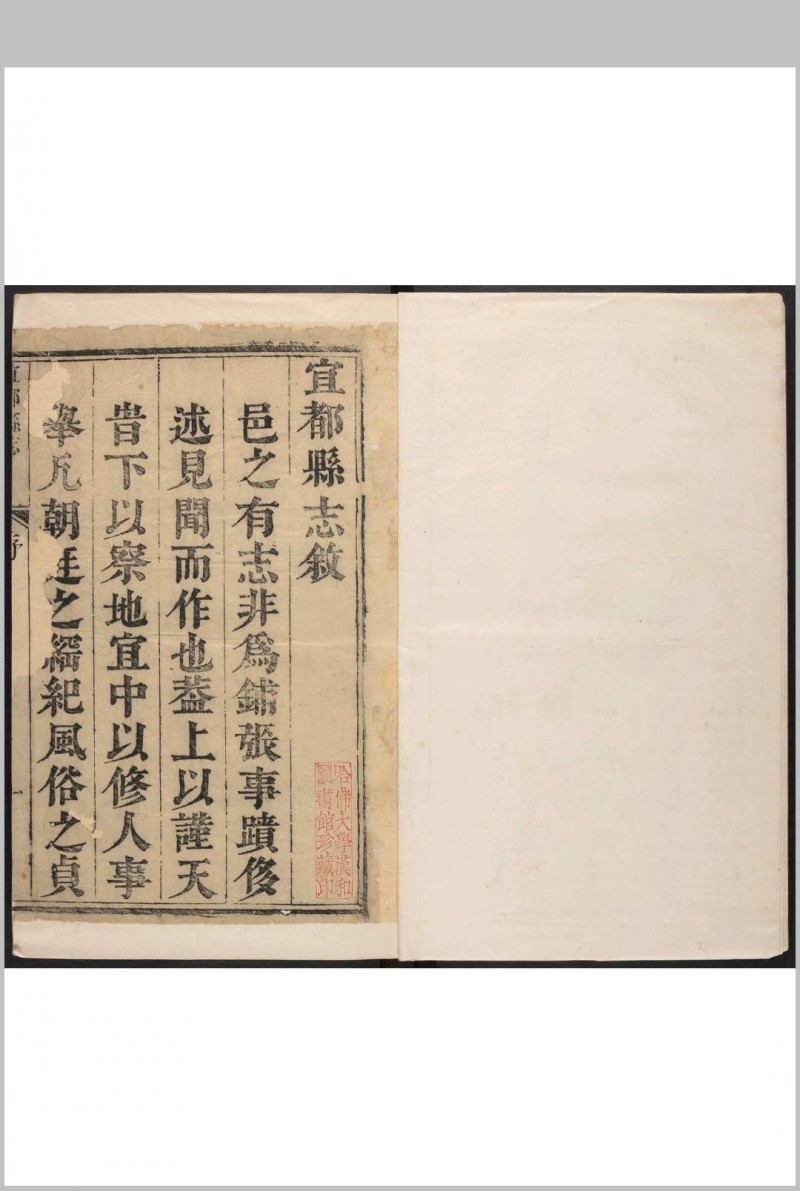 宜都縣志敘
邑之有志非爲鋪張事蹟侈
述見聞而作也葢上以謹天
眚下以察地宜中以修人事
舉凡朝廷之綱紀風俗之貞
宜都縣志
序
一
哈佛大學漢和
圖書館珍藏印